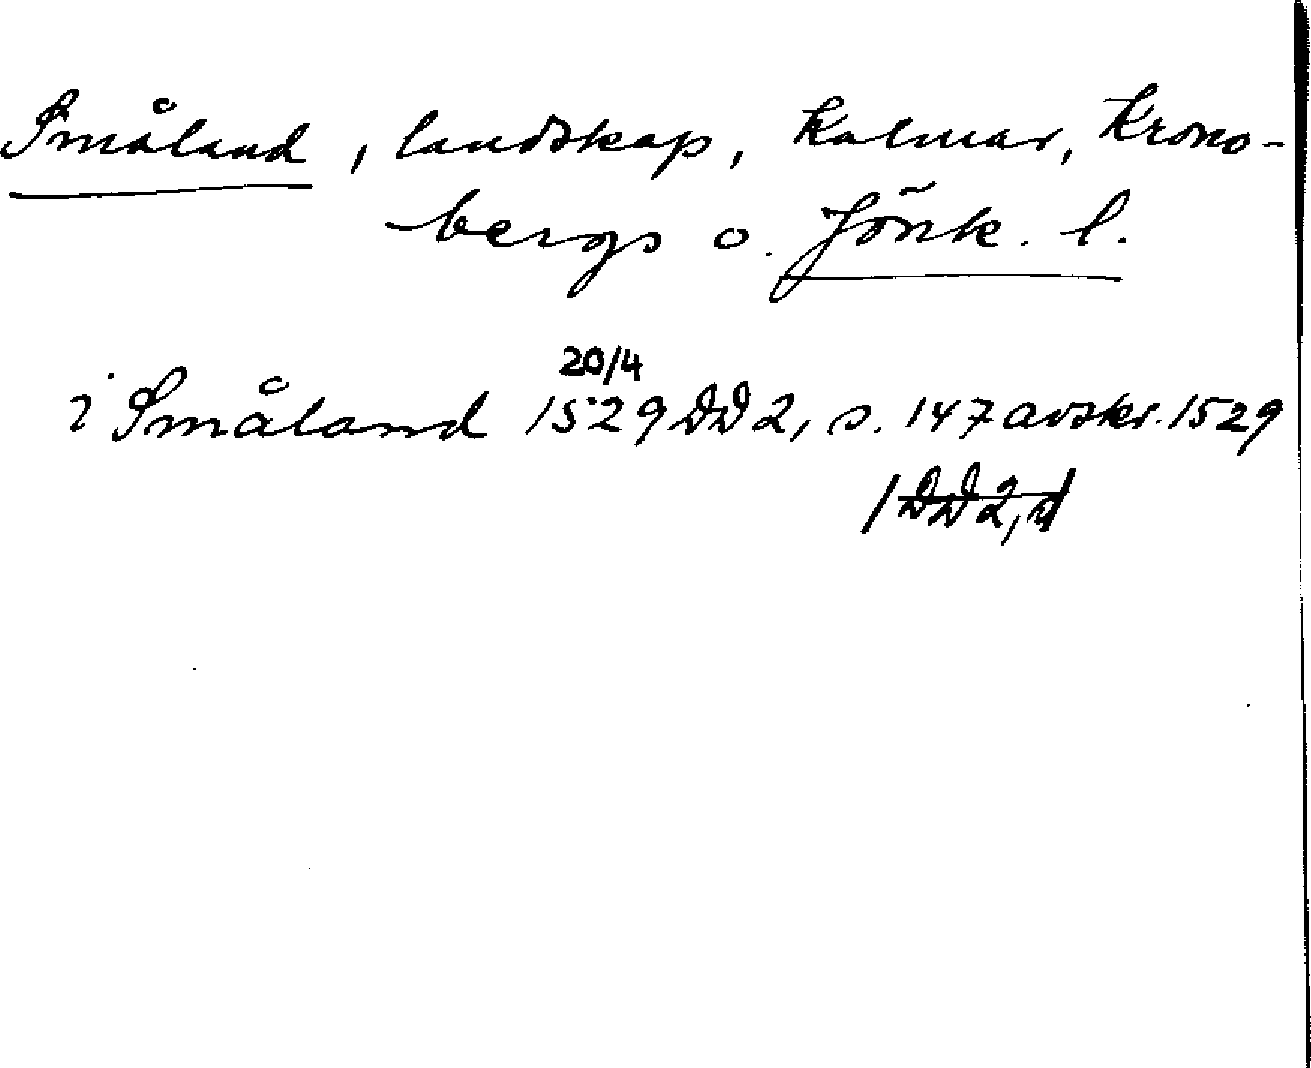 Småland, landskap, Kalmar, Krono-
bergs o. Jönk. l.
20/4
i Småland 1529 DD 2, s. 147 avskr. 1529
/DD 2, s/